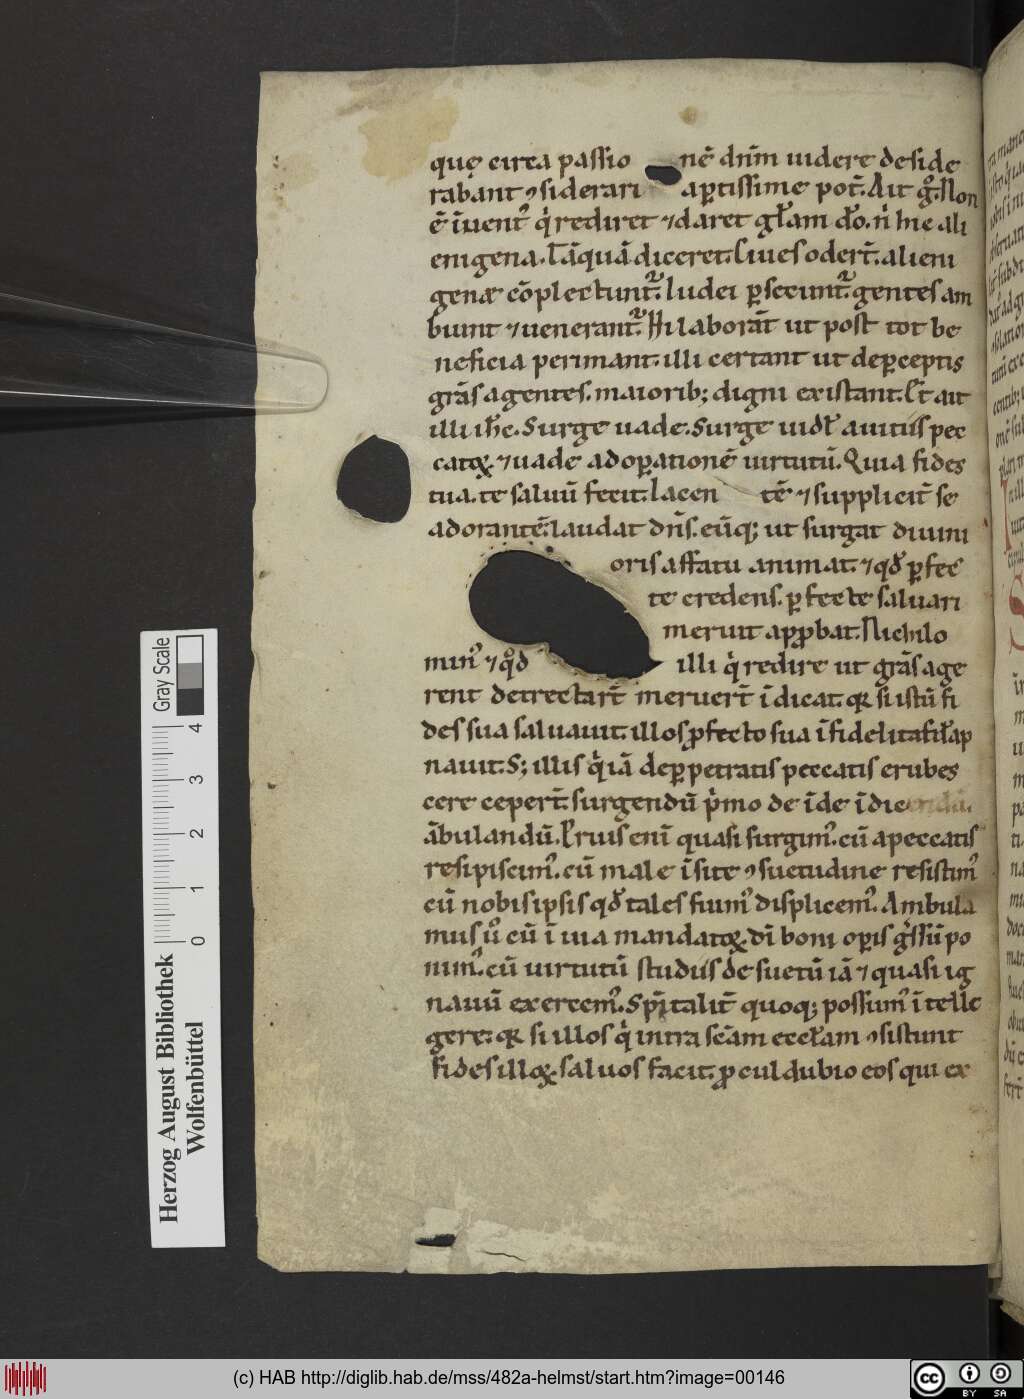 quę circa passio nē dn̄m uidere deside
rabant ꝯsiderari aꝑtissime pot̄. Ait g̊. Non
ē īuentꝰ q̇ rediret ⁊ daret gl̄am dō. n̄ hic ali
enigena. Tāquā diceret. Ciues oder̄t. alieni
genæ cōplectunt᷑. Iudei ꝑsecunt᷑. gentes am
biunt ⁊ uenerant᷑. Hi laborāt ut post tot be
neficia perimant. illi certant ut de ꝑceptis
grās agentes. maiorib; digni existant. Et ait
illi ih̄c. Surge uade. Surge uidet̄ a uitiis pec
catoꝝ. ⁊ uade ad oꝑationē uirtutū. Quia fides
tua. te saluū fecit. Iacen tē ⁊ supplicit̄ se
adorantē. laudat dn̄s. eūq; ut surgat diuini
oris affatu animat. ⁊ qđ ꝑfec
te credens. ꝑfecte saluari
meruit apꝓbat. Nichilo
minꝰ ⁊ qđ illi q̇ redire ut grās age
rent detrectar̄t meruer̄t īdicat. qꝛ si istū fi
des sua saluauit. illos ꝓfecto sua īfidelitas
nauit. S; illis q̇ iā de ꝑpetratis peccatis erubes
cere ceper̄t. surgendū ṗmo deīde
ābulandū. Priꝰ enī quasi surgimꝰ. cū a peccatis
resipiscimꝰ. cū male īsite ꝯsuetudine resistimꝰ
cū nobis ipsis qđ tales fuimꝰ displicemꝰ. Ambula
mus ů cū ī uia mandatoꝝ dī boni oꝑis g̊ssū po
nimꝰ. cū uirtutū studiis desuetū iā ⁊ quasi ig
nauū exercemꝰ. Sp̄italit̄ quoq; possumꝰ ītelle
gere. qꝛ si illos q̇ intra sc̄am eccl̄am ꝯsistunt
fides illoꝝ saluos facit. ꝓcul dubio eos qui ex
Herzog August Bibliothek
Wolfenbüttel
0 1 2 3 4
Gray Scale
(c) HAB http://diglib.hab.de/mss/482a-helmst/start.htm?image=00146
cc BY SA